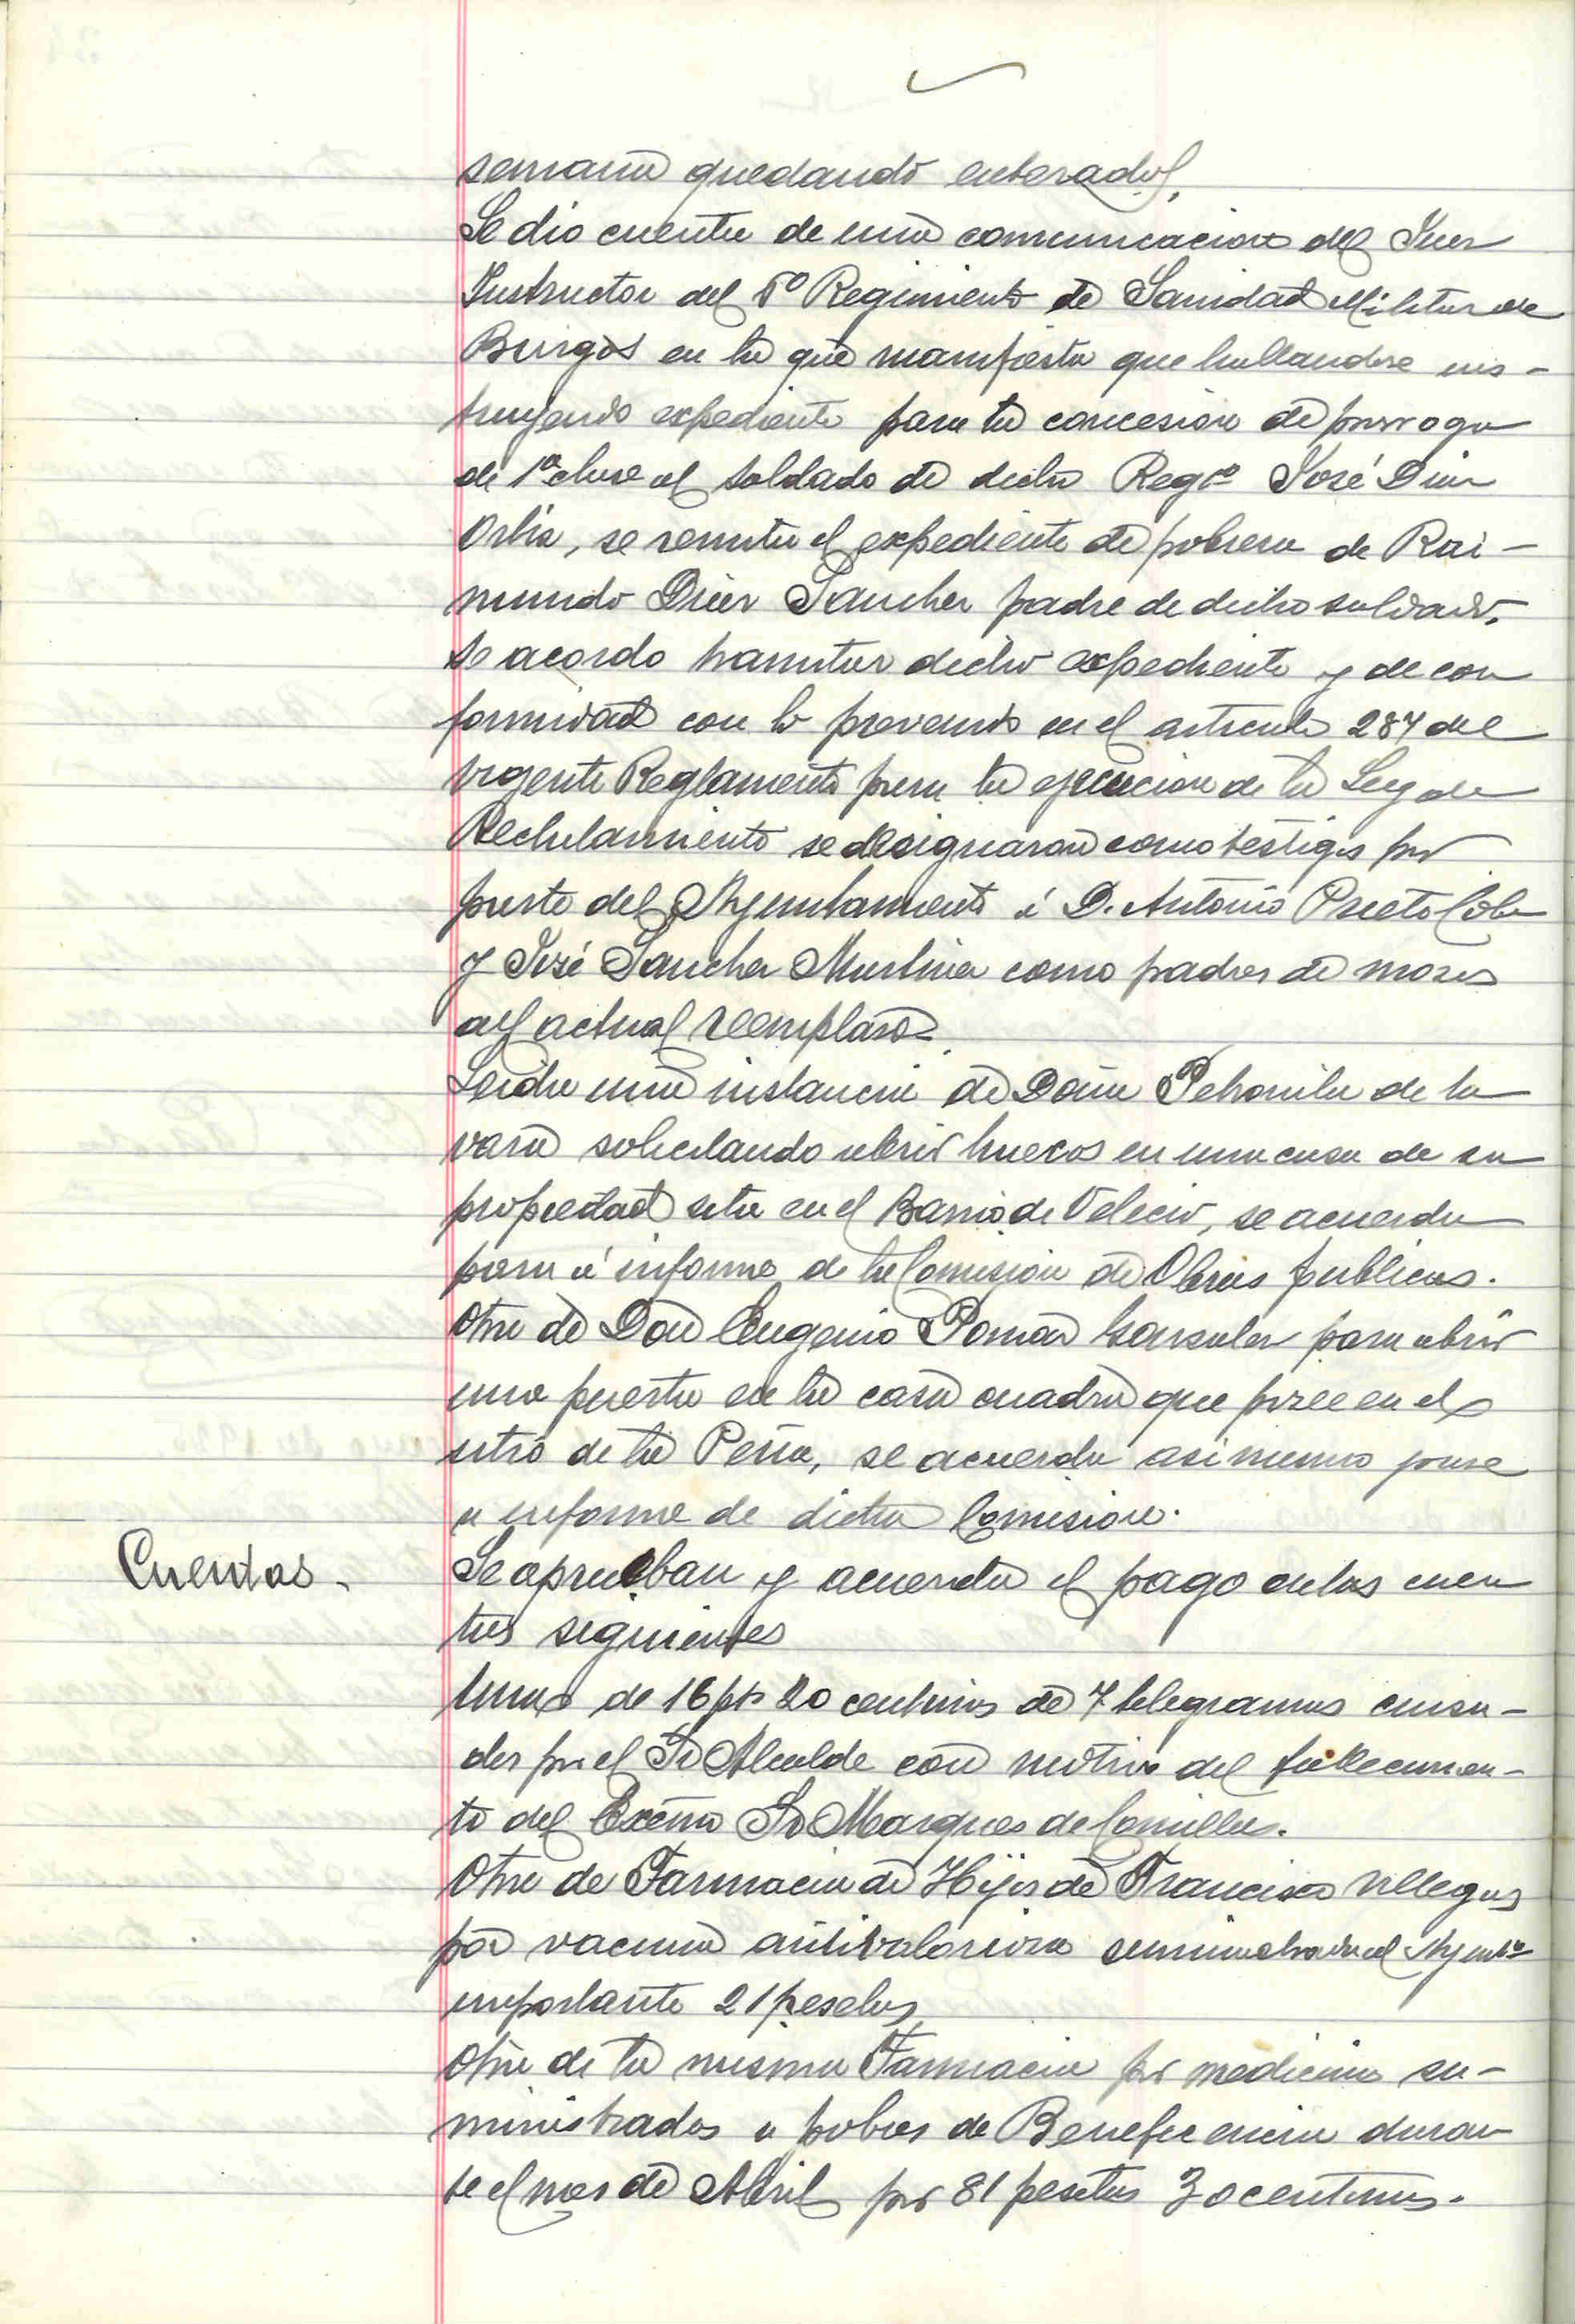 semana quedando enterados.
Se dio cuenta de una comunicacion del Juez
Instructor del 6º Regimiento de Sanidad Militar de
Burgos en la que manifiesta que hallandose ins-
truyendo expediente para la concesion de prorroga
de 1ª clase al soldado de dicho Regtº José Diez
Ortiz, se remita el expediente de pobreza de Rai-
mundo Diez Sanchez padre de dicho soldado.
Se acordo tramitar dicho expediente y de con
formidad con lo prevenido en el articulo 287 del
vigente Reglamento para la ejecucion de la Ley de
Reclutamiento se designaron como testigos por
parte del Ayuntamiento á D. Antonio Prieto
y José Sanchez como padres de mozos
al actual reemplazo.
Leida una instancia de Doña Petronila de la
vara solicitando abrir huecos en una casa de su
propiedad sita en el Barrio de Velecio, se acuerda
pasar á informe de la Comision de Obras publicas.
Otra de Don Eugenio Pomar Gonzalez para abrir
una puerta en la casa cuadra que posee en el
sitio de la Peña, se acuerda asimismo pase
a informe de dicha Comision.
Cuentas -
Se aprueban y acuerda el pago de las cuen
tas siguientes
Una de 16 pts 20 centimos de 7 telegramas cursa-
dos por el Sr Alcalde con motivo del fallecimien-
to del Excmo Sr Marques de Comillas.
Otra de Farmacia de Hijos de Francisco Villegas
por vacuna antivariolica suministrada al Ayuntº
importante 21 pesetas
Otra de la misma Farmacia por medicina su-
ministrados a pobres de Beneficencia duran
te el mes de Abril por 81 pesetas 30 centimos.